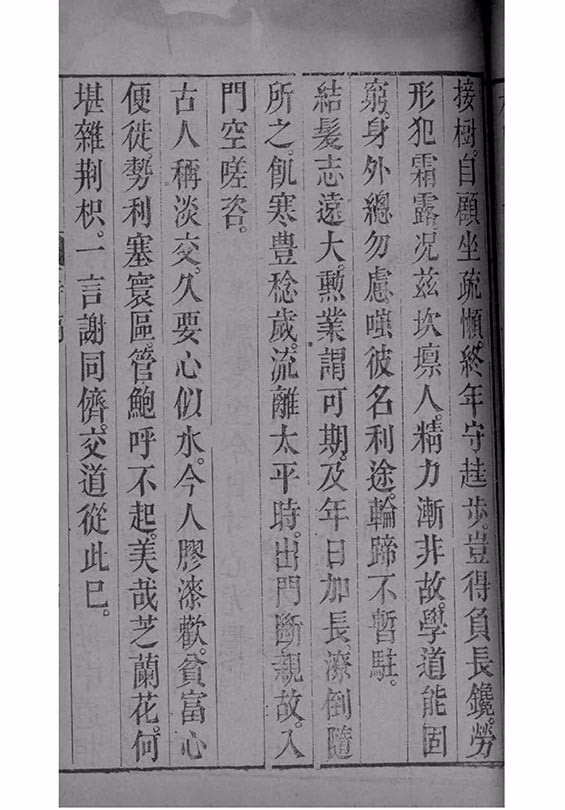 接樹。自顧坐疏懶。終年守跬步。豈得負長鑱。勞
形犯霜露。况茲坎壈人。精力漸非故。學道能固
窮。身外總勿慮。嘆彼名利途。輪蹄不暫駐。
結髮志遠大。勲業謂可期。及年日加長。潦倒隨
所之。飢寒豊稔歲。流離太平時。出門斷親故。入
門空嗟咨。
古人稱淡交。久要心似水。今人膠漆歡。貧富心
便徙。勢利塞寰區。管鮑呼不起。美哉芝蘭花。何
堪雜荆枳。一言謝同儕。交道從此已。